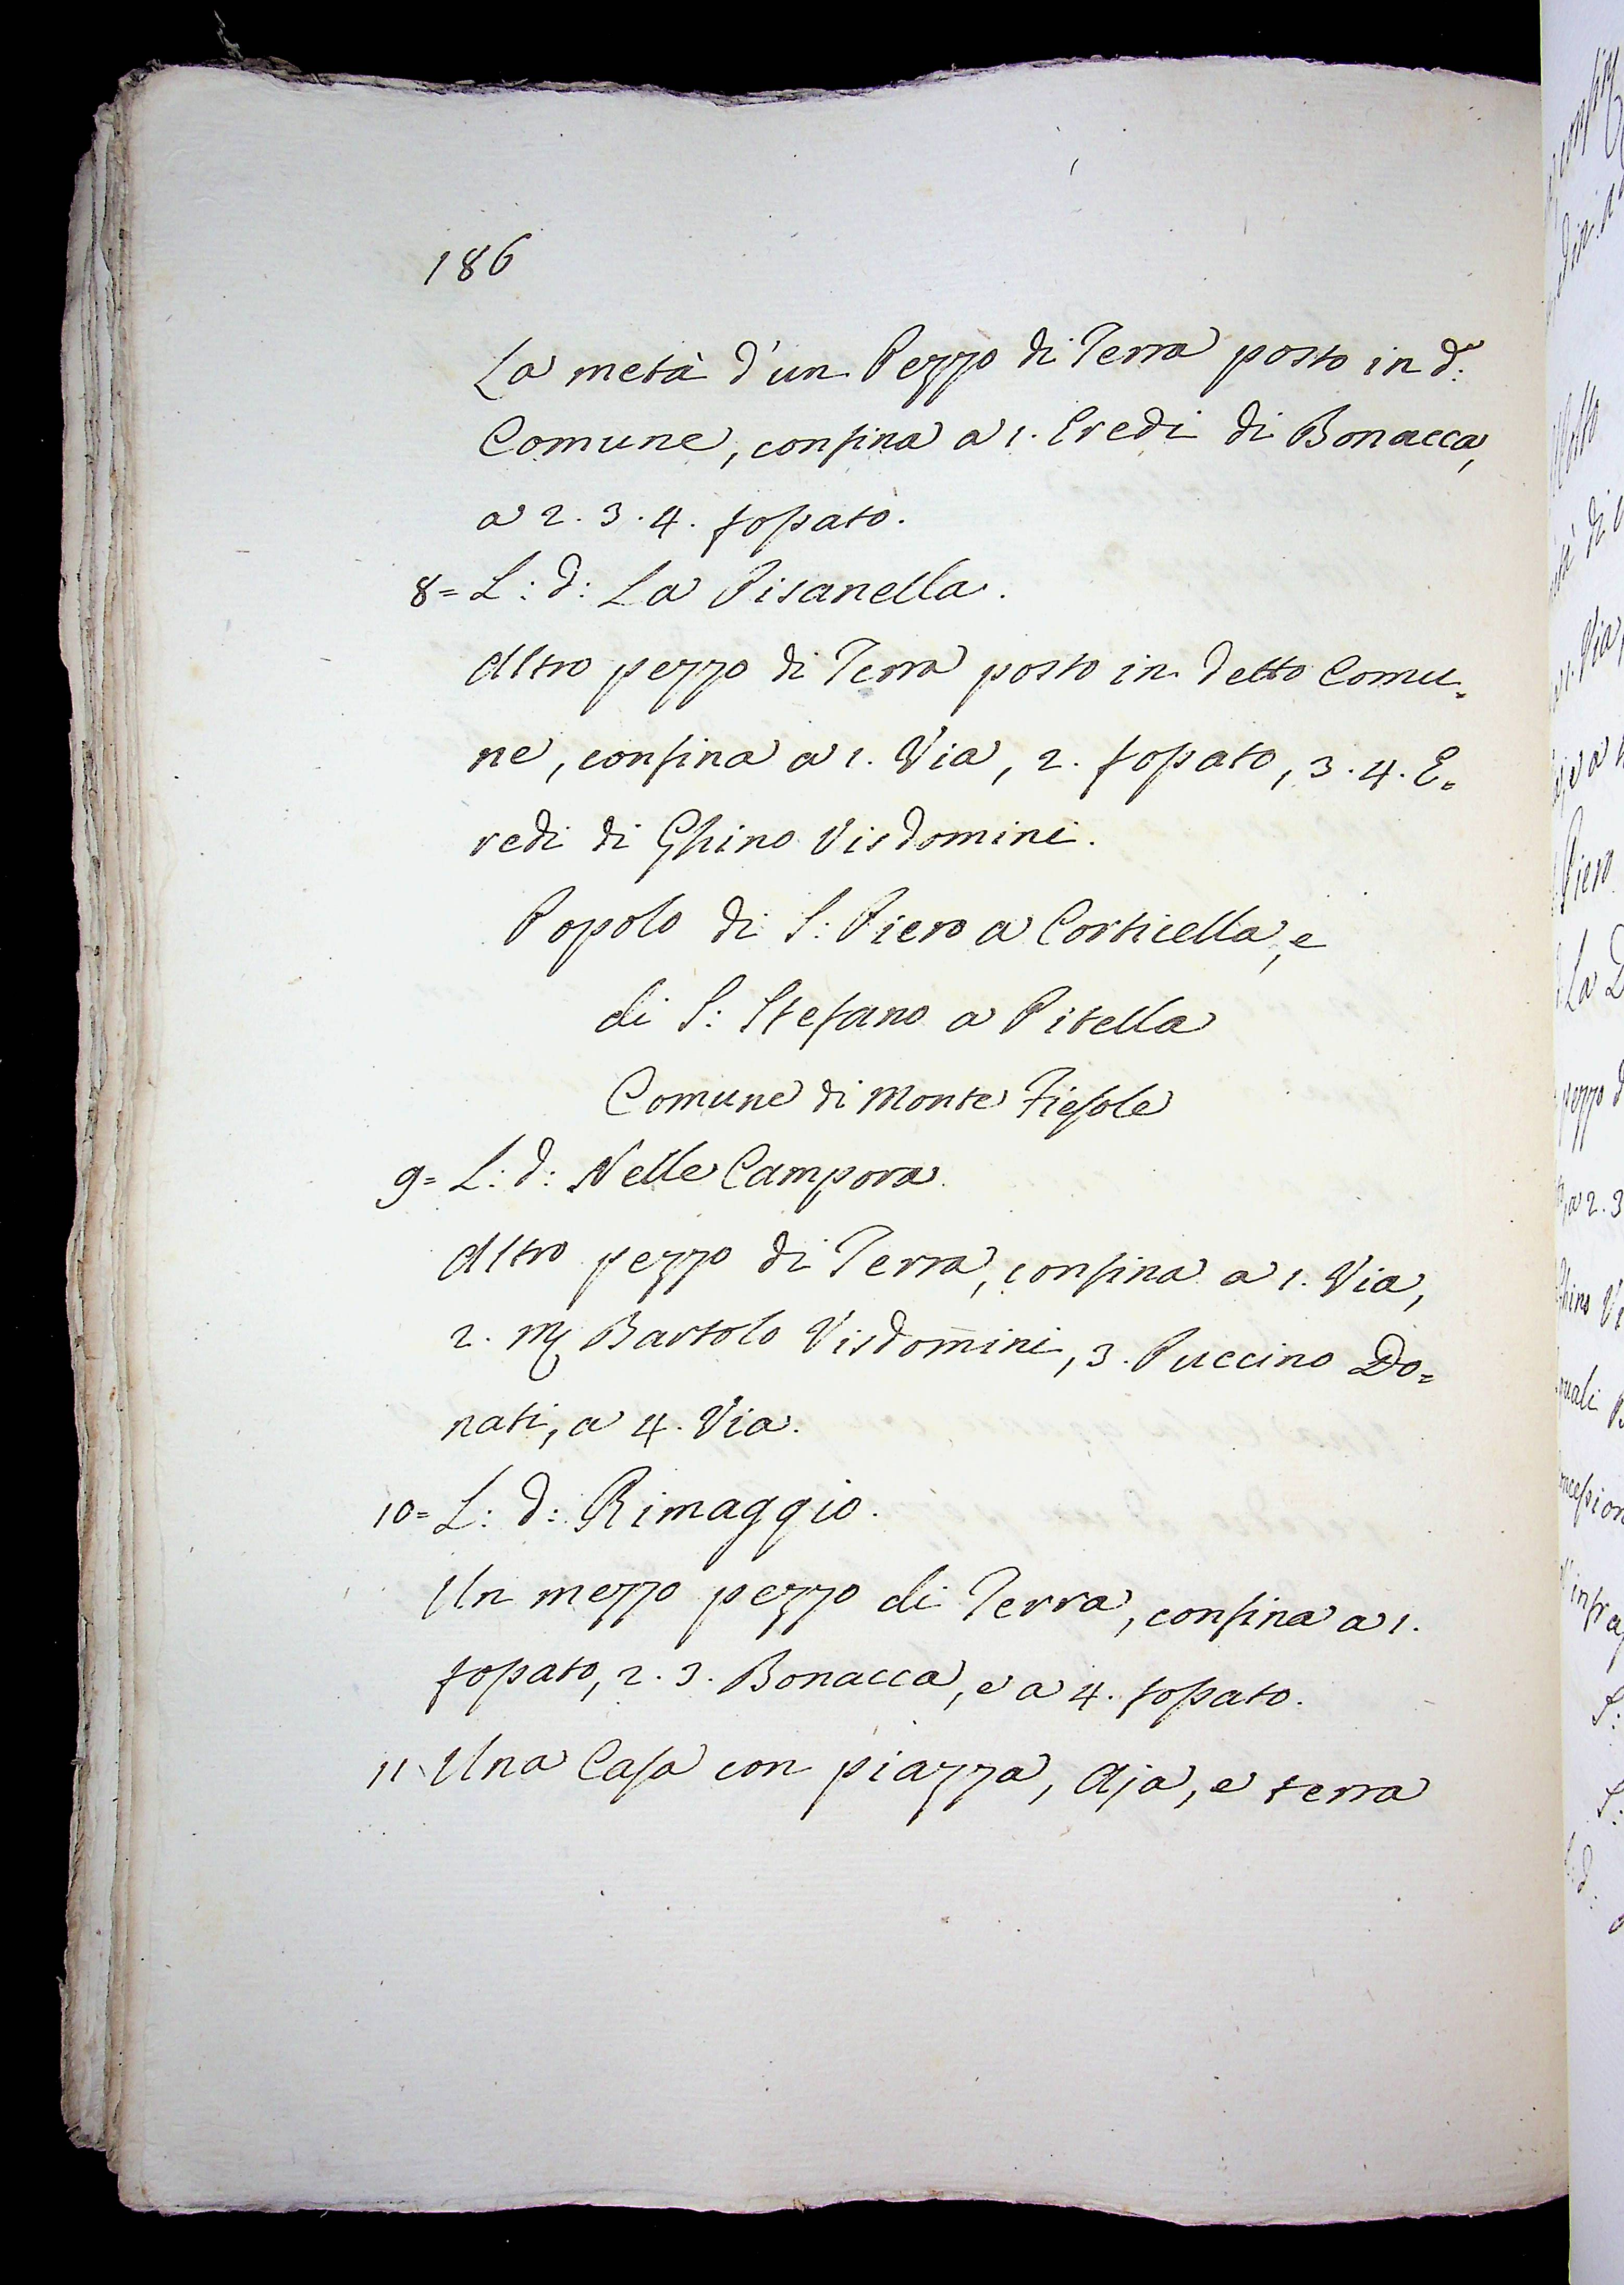 186
La metà d'un Pezzo di Terra posto in d.º
Comune, confina a 1. Eredi di Bonacca,
a 2. 3. 4. fossato.
8= L: d: La Pisanella.
Altro pezzo di Terra posto in detto Comu=
ne, confina a 1. Via, 2. fossato, 3. 4. E=
redi di Ghino Visdomini.
Popolo di S: Piero a Corticella, e
di S: Stefano a Pitella
Comune di Monte Fiesole
9= L: d: Nelle Campora.
Altro pezzo di Terra, confina a 1. Via,
2. M. Bartolo Visdomini, 3. Puccino Do=
nati, a 4. Via.
10= L: d: Rimaggio.
Un mezzo pezzo di Terra, confina a 1.
fossato, 2. 3. Bonacca, e a 4. fossato.
11 Una Casa con piazza, Aja, e terra